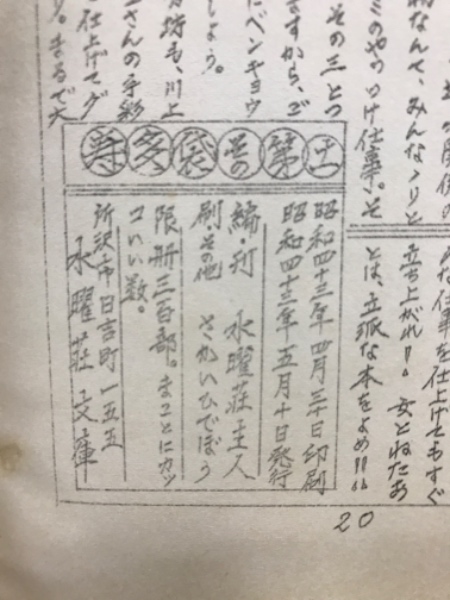 の関係の
なんて、みんな
ミのやっつけ仕事。そ
その三とつ
ますから、ご
にベンキョウ
しょう。
坊も、川上
さんの手彩
仕上げてダ
り。まるで大
な仕事を仕上げてもすぐ
立ち上がれ!!。女とねたあ
とは、立派な本をよめ!!!!
寿多袋其の第十一
昭和四十三年四月三十日印刷
昭和四十三年五月十日発行
編・刊 水曜荘主人
刷・その他 さかいひでぼう
限册三百部。まことにカッ
コいい数。
所沢市日吉町一五五
水曜荘文庫
20